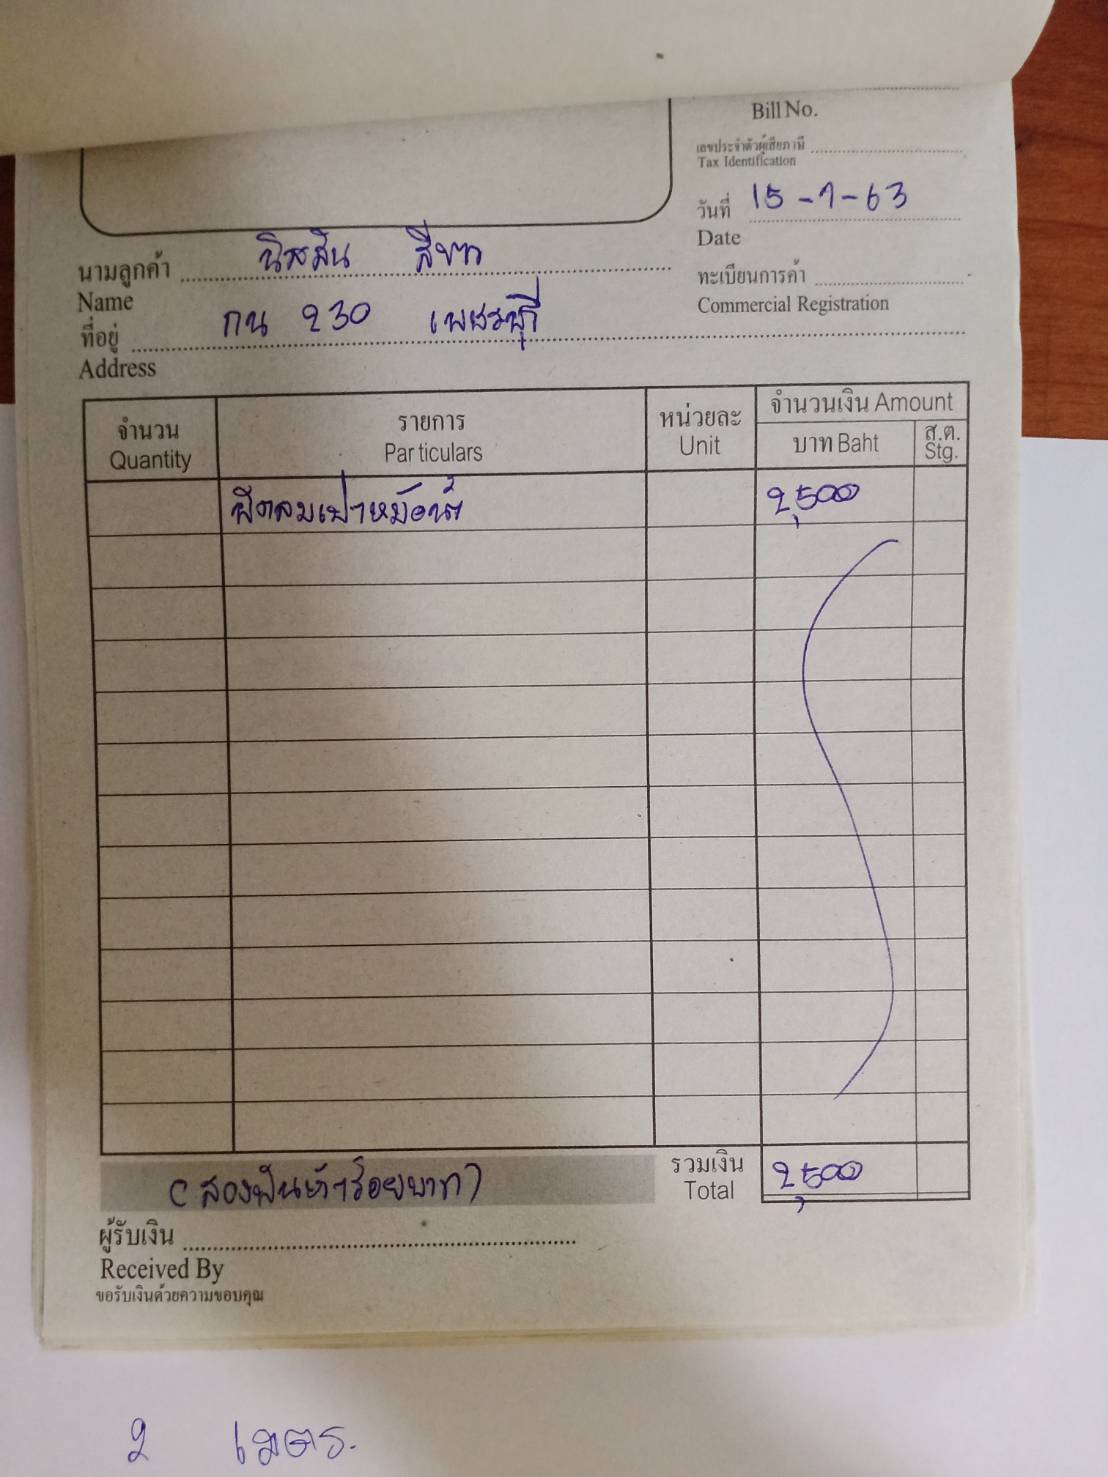 Bill No.
เลขประจำตัวผู้เสียภาษี
Tax Identification
วันที่ 15-7-63
Date
นามลูกค้า นิสสัน สีขาว
Name
ทะเบียนการค้า
Commercial Registration
ที่อยู่ กน 230 เพชรบุรี
Address
จำนวน รายการ หน่วยละ จำนวนเงิน Amount
Quantity Particulars Unit บาท Baht ส.ต. Stg.
2,500
(สองพันห้าร้อยบาท) รวมเงิน 2,500
Total
ผู้รับเงิน
Received By
ขอรับเงินด้วยความขอบคุณ
2 เมตร.